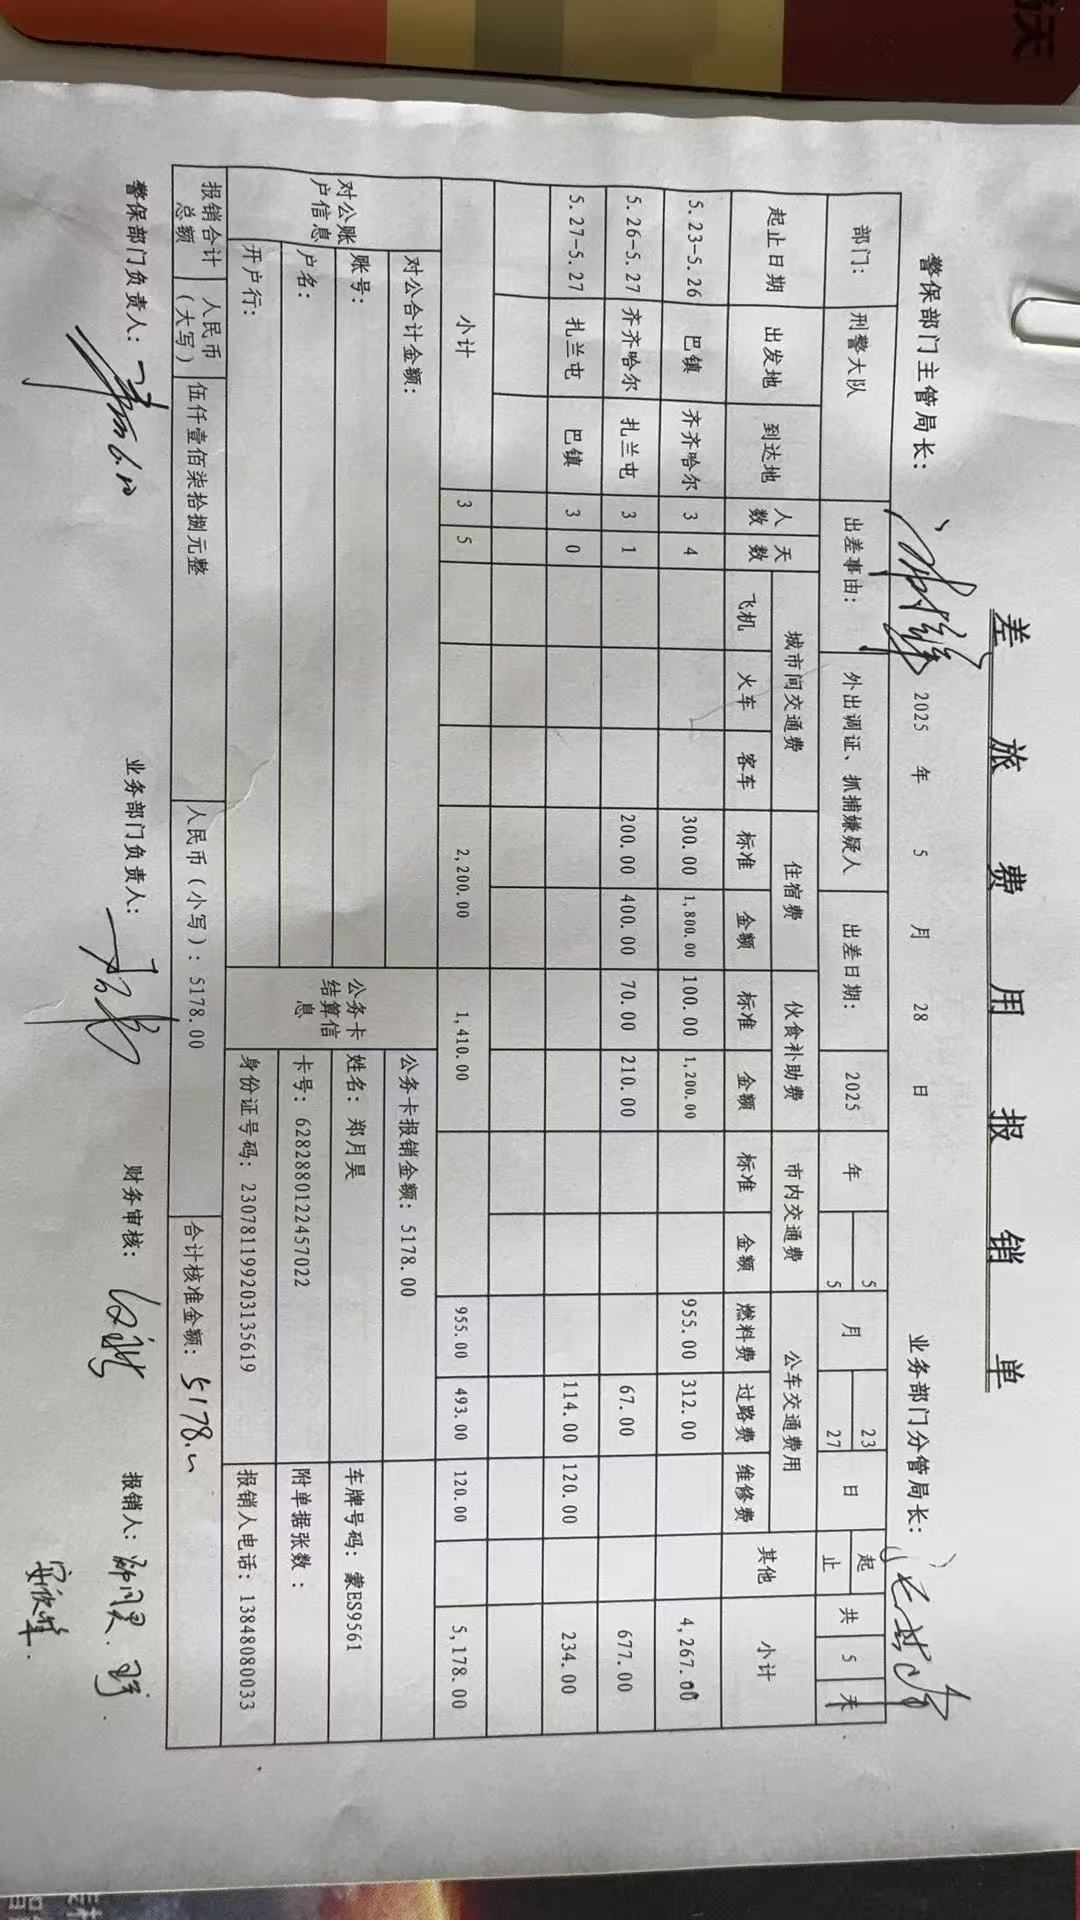 差旅费用报销单
警保部门主管局长： 2025 年 5 月 28 日 业务部门分管局长：
部门： 刑警大队 出差事由： 外出调证、抓捕嫌疑人 出差日期： 2025 年 5 月 23 日 起 共 5 天
5 27 止
起止日期 出发地 到达地 人数 天数 城市间交通费 住宿费 伙食补助费 市内交通费 公车交通费用 其他 小计
飞机 火车 客车 标准 金额 标准 金额 标准 金额 燃料费 过路费 维修费
5.23-5.26 巴镇 齐齐哈尔 3 4 300.00 1,800.00 100.00 1,200.00 955.00 312.00 4,267.00
5.26-5.27 齐齐哈尔 扎兰屯 3 1 200.00 400.00 70.00 210.00 67.00 677.00
5.27-5.27 扎兰屯 巴镇 3 0 114.00 120.00 234.00
小计 3 5 2,200.00 1,410.00 955.00 493.00 120.00 5,178.00
对公账户信息 对公合计金额： 公务卡结算信息 公务卡报销金额：5178.00
账号： 姓名：郑月昊 车牌号码：蒙ES9561
户名： 卡号：6282880122457022 附单据张数：
开户行： 身份证号码：230781199203135619 报销人电话：13848080033
报销合计总额 人民币（大写） 伍仟壹佰柒拾捌元整 人民币（小写）：5178.00 合计核准金额：5178.
警保部门负责人： 业务部门负责人： 财务审核： 报销人：